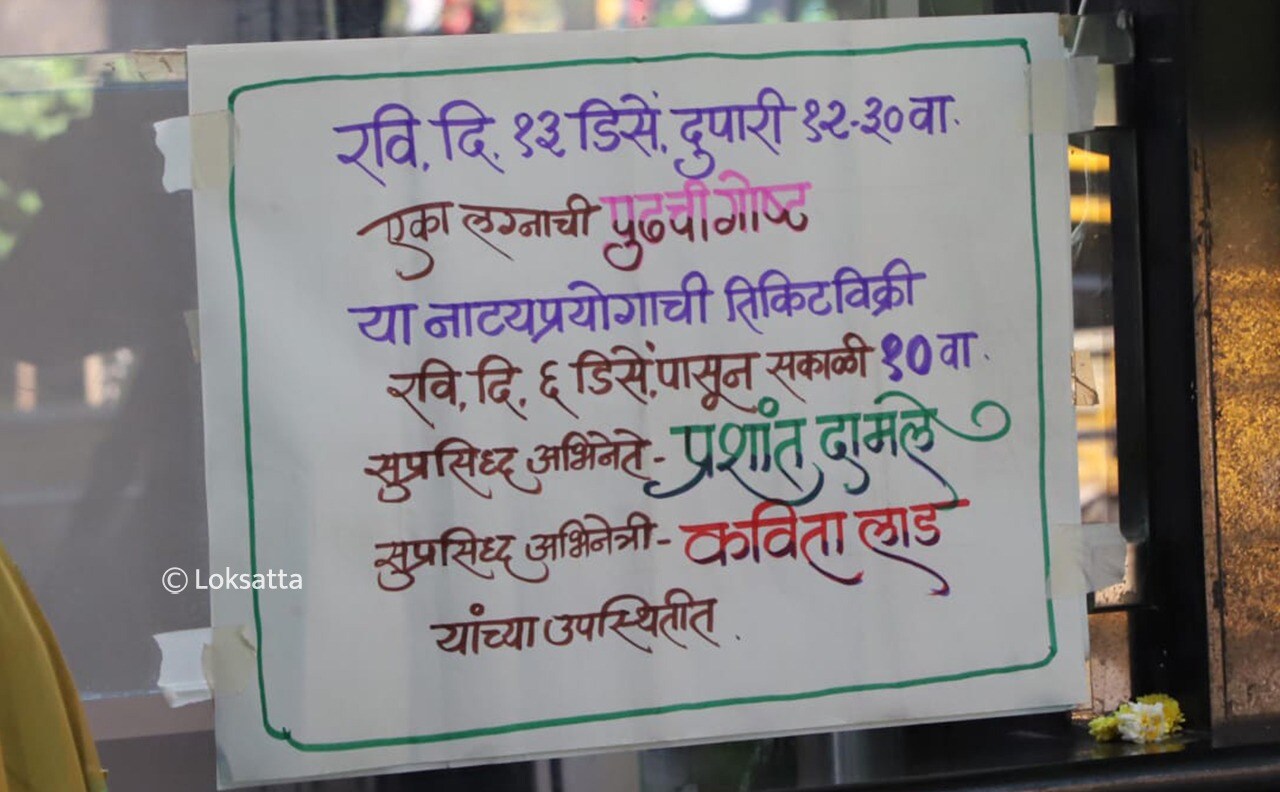 रवि. दि. १३ डिसें. दुपारी १२-३० वा.
एका लग्नाची पुढची गोष्ट
या नाट्यप्रयोगाची तिकिटविक्री
रवि. दि. ६ डिसें. पासून सकाळी १० वा.
सुप्रसिध्द अभिनेते - प्रशांत दामले
सुप्रसिध्द अभिनेत्री - कविता लाड
यांच्या उपस्थितीत.
© Loksatta